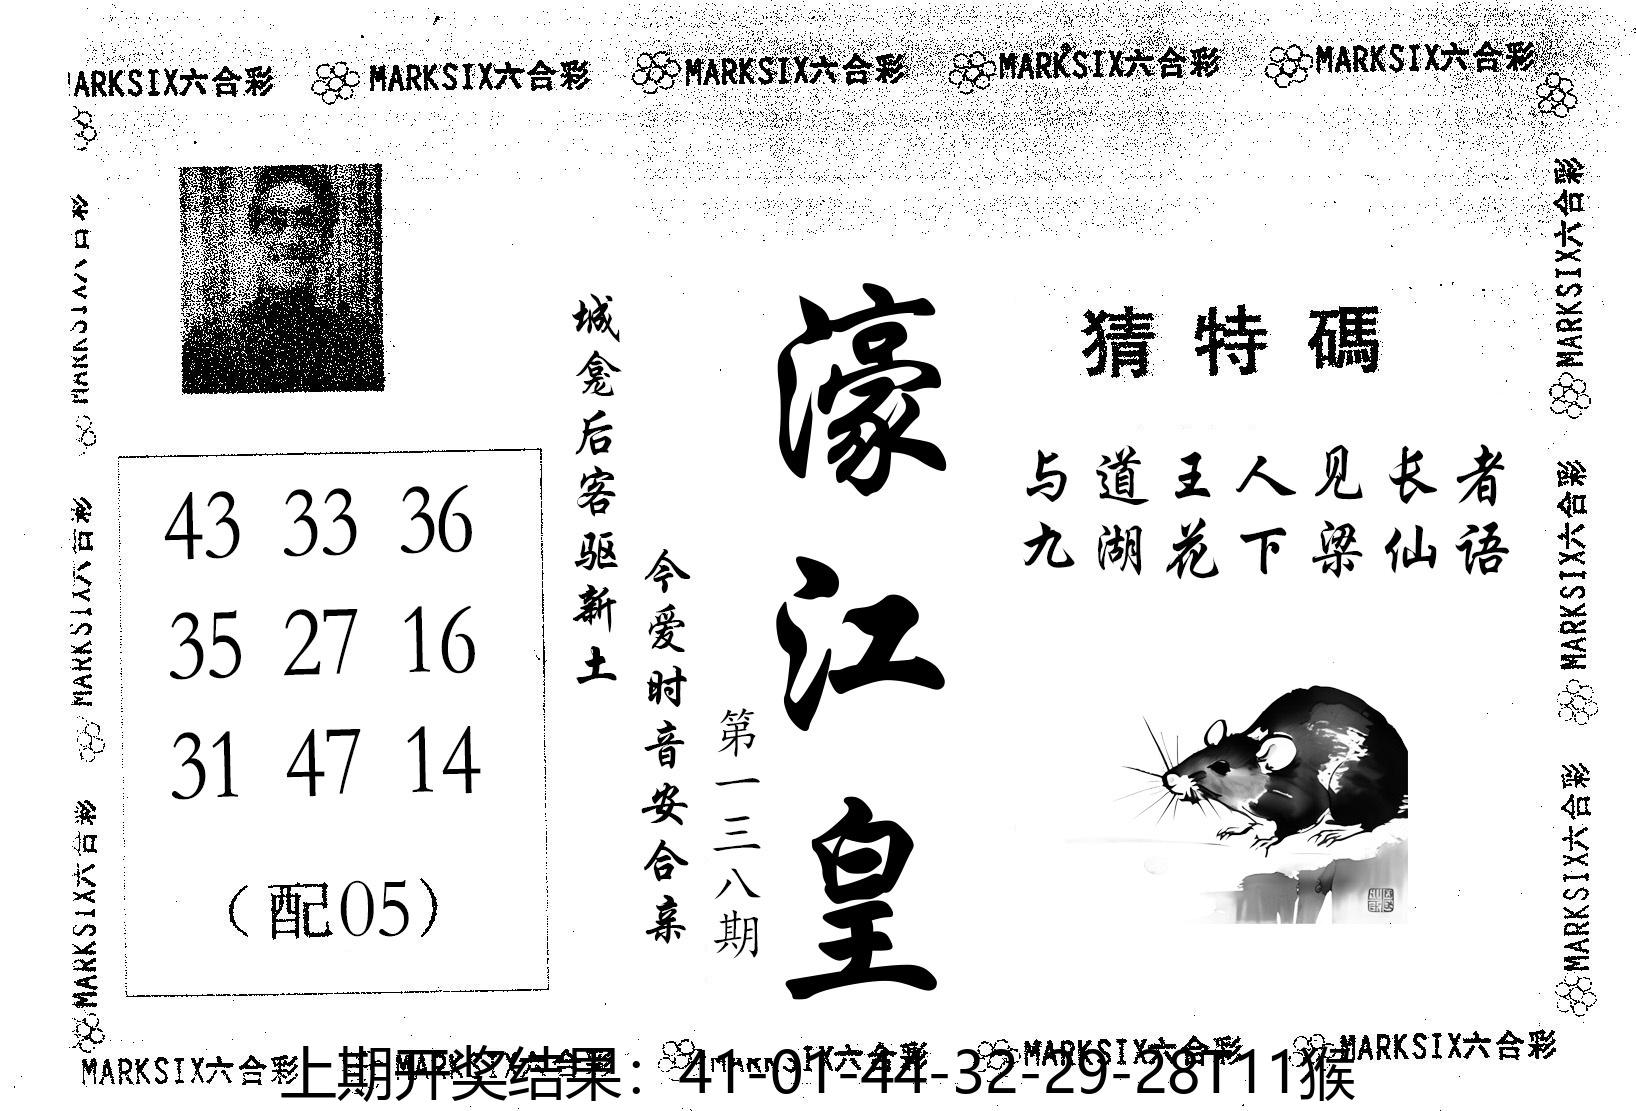 MARKSIX六合彩 MARKSIX六合彩 MARKSIX六合彩 MARKSIX六合彩 MARKSIX六合彩
猜特碼
与道王人见长者
九湖花下梁仙语
濠江皇
第一三八期
今爱时音安合亲
城龛后客驱新土
43 33 36
35 27 16
31 47 14
（配05）
MARKSIX六合彩
MARKSIX六合彩
MARKSIX六合彩
MARKSIX六合彩
MARKSIX六合彩
MARKSIX六合彩
MARKSIX六合彩 MARKSIX六合彩 MARKSIX六合彩 MARKSIX六合彩 MARKSIX六合彩
上期开奖结果：41-01-44-32-29-28T11猴